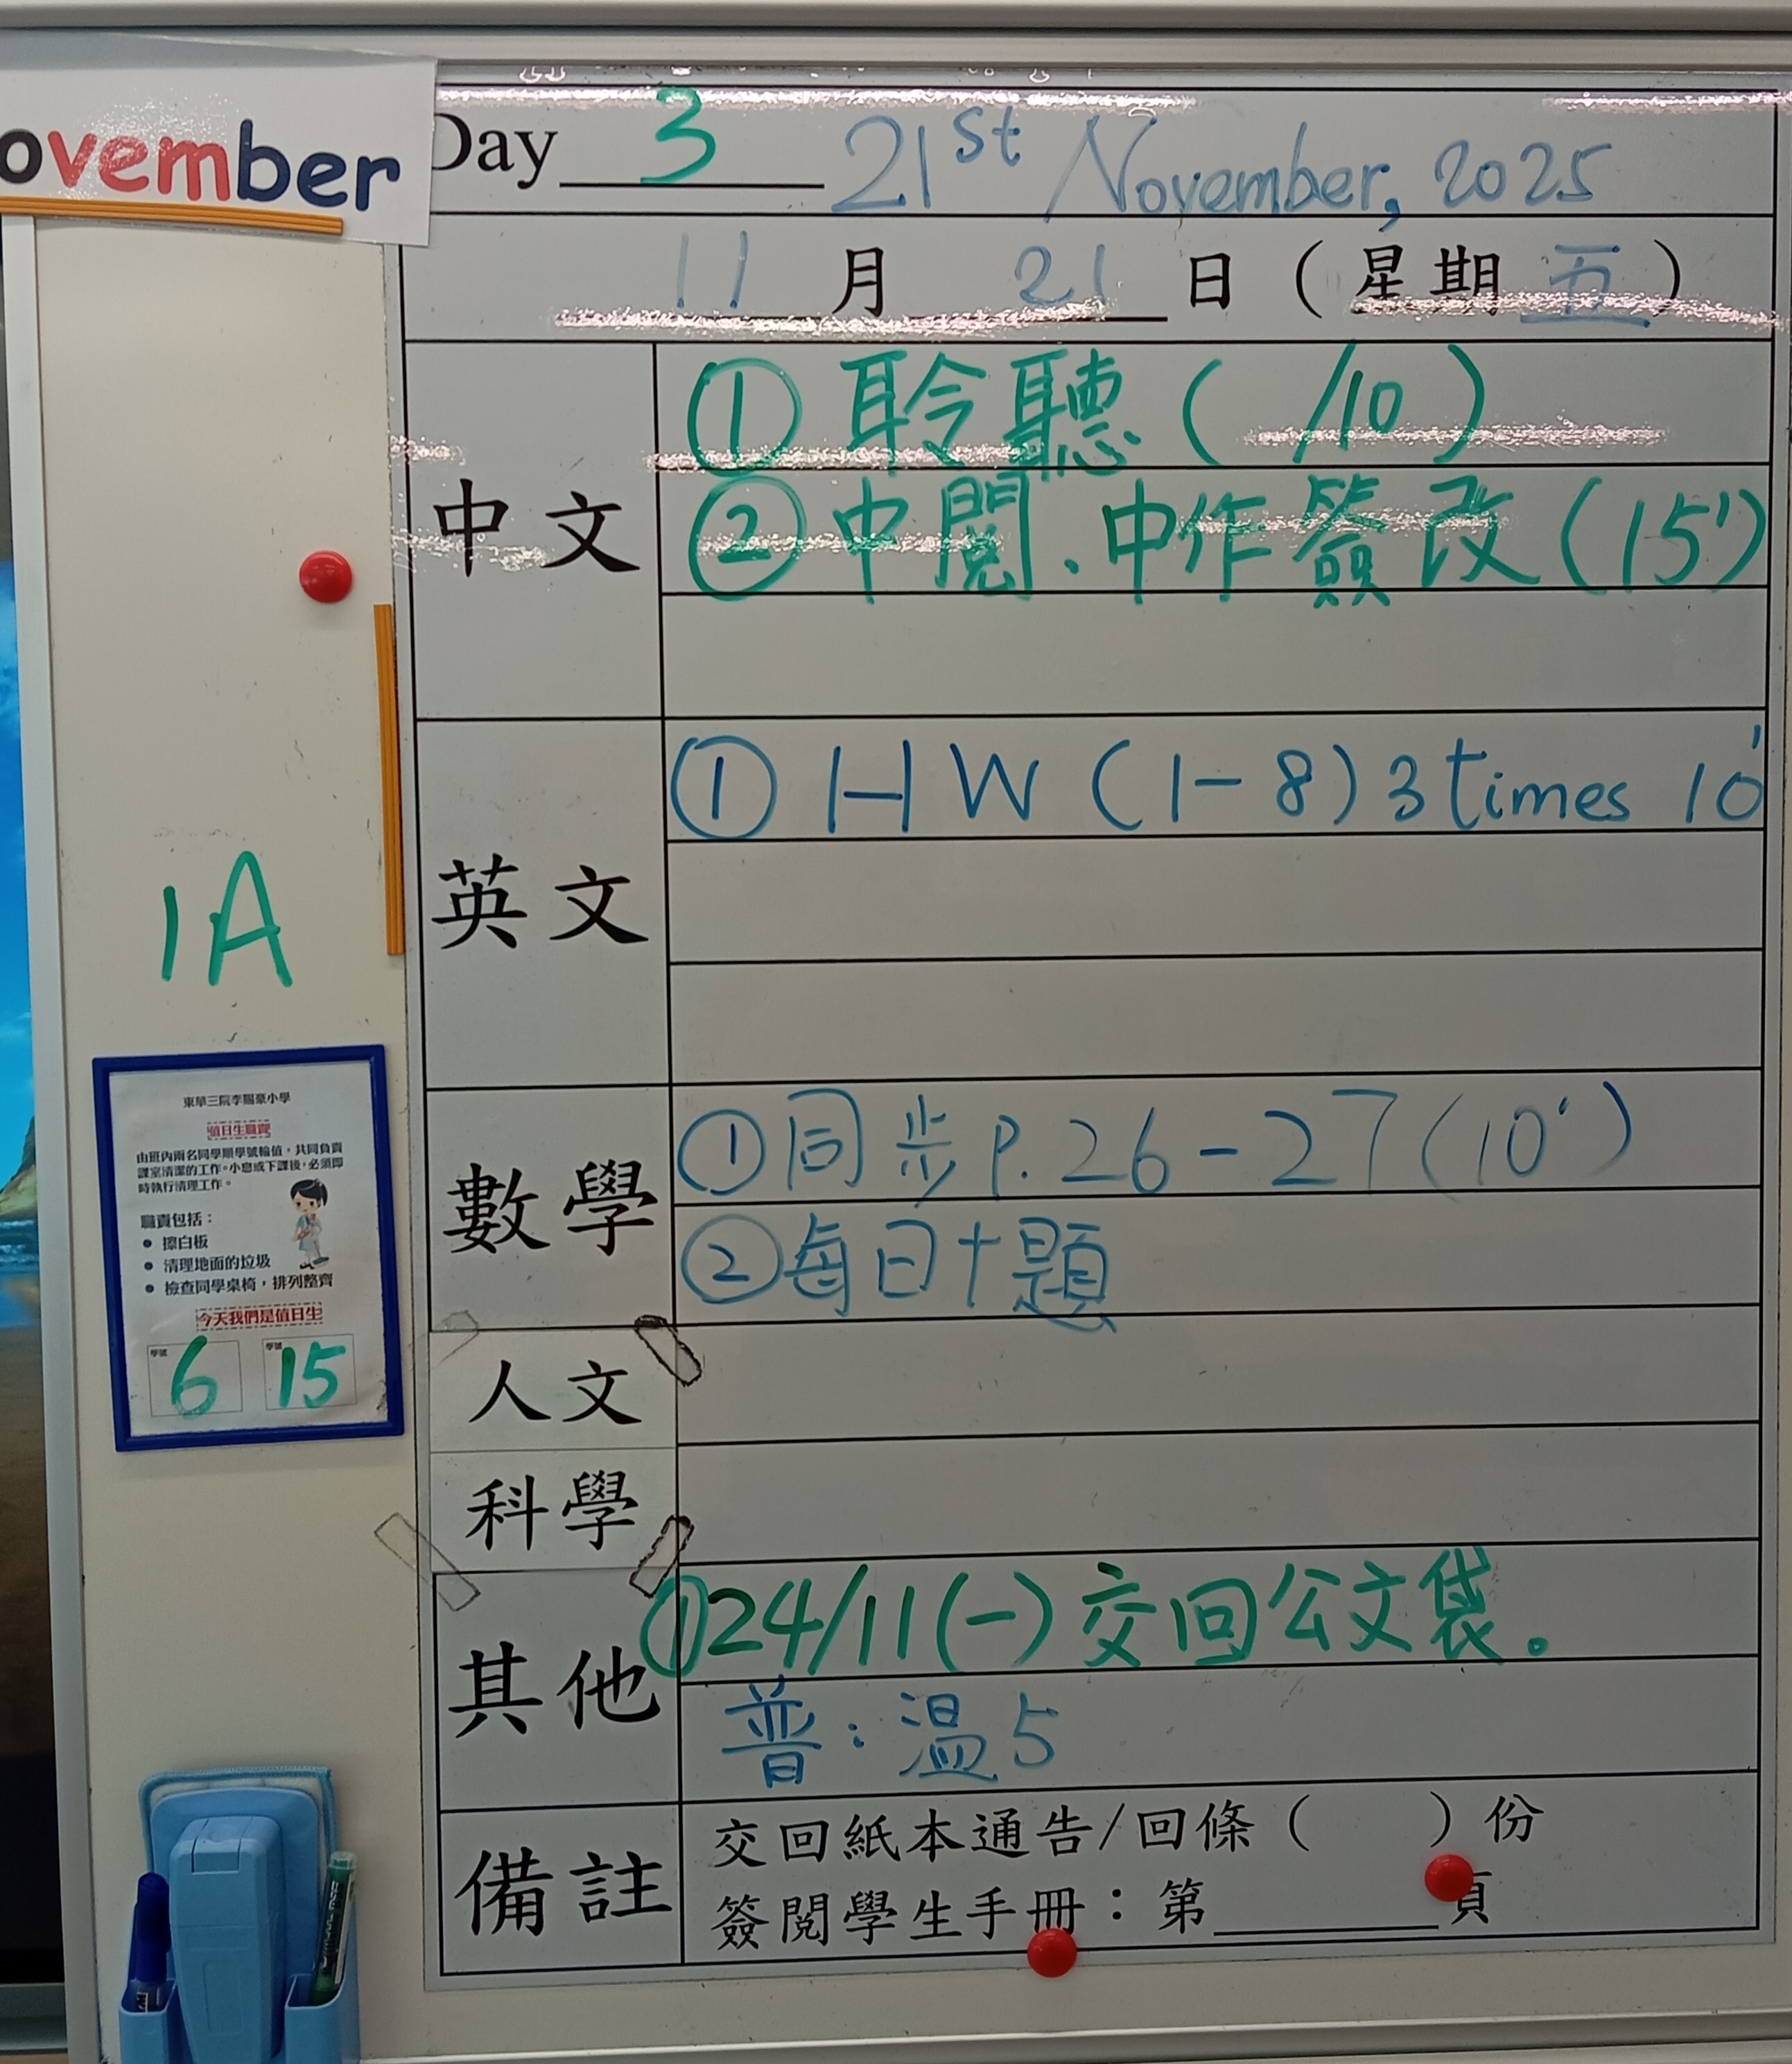 ovember
Day 3 21st November, 2025
11 月 21 日 ( 星期 五 )
中文
① 聆聽 ( /10 )
② 中閱、中作簽改 (15')
英文
① HW (1-8) 3 times 10'
1A
數學
① 同步 P.26-27 (10')
② 每日十題
東華三院李賜豪小學
值日生職責
由班內兩名同學順學號輪值，共同負責
課室清潔的工作。小息或下課後，必須即
時執行清理工作。
職責包括：
• 擦白板
• 清理地面的垃圾
• 檢查同學桌椅，排列整齊
今天我們是值日生
學號 6 學號 15
人文
科學
其他
① 24/11 (一) 交回公文袋。
普：溫5
備註
交回紙本通告/回條 ( ) 份
簽閱學生手冊：第______頁